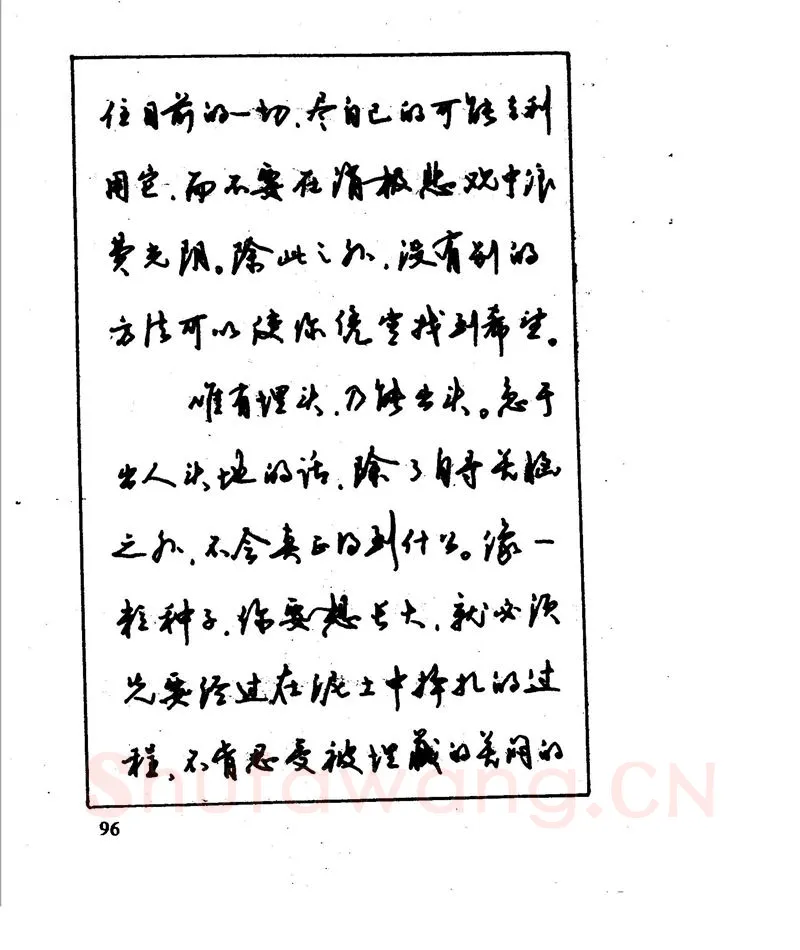 住目前的一切,尽自己的可能去利
用它,而不要在消极悲观中浪
费光阴。除此之外,没有别的
方法可以使你凭空找到希望。
唯有埋头,乃能出头。急于
出人头地的话,除了自寻苦恼
之外,不会真正得到什么。像一
粒种子,你要想长大,就必须
先要经过在泥土中挣扎的过
程,不肯忍受被埋藏的苦闷的
Shufawang.CN
96